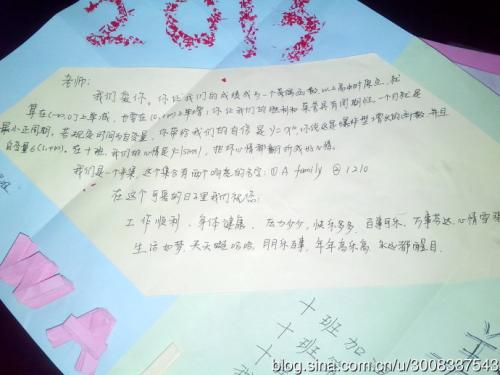 2013
老师:
我们爱你。你让我们的成绩成为一个幂函数,以上高中时原点,就
算在(-∞,0)上单减,也要在(0,+∞)上单增;你让我们的胜利和荣誉具有周期性,一个月就是
最小正周期,若规定时间为自变量,你带给我们的自信是y=xⁿ,你说这是爆炸型增长的函数,并且
自变量∈(1,+∞)。在十班,我们的心情是y=|sinx|,把坏心情都翻折成好心情。
我们是一个集,这个集合有两个响亮的名字:① A family ② 1210
在这个可喜的日子里我们祝您:
工作顺利,身体健康,压力少少,快乐多多,百事可乐,万事芬达,心情雪碧
生活如梦,天天哇哈哈,月月乐百事,年年高乐高,永远都醒目.
WA
十班加
十班
十
blog.sina.com.cn/u/3008387543